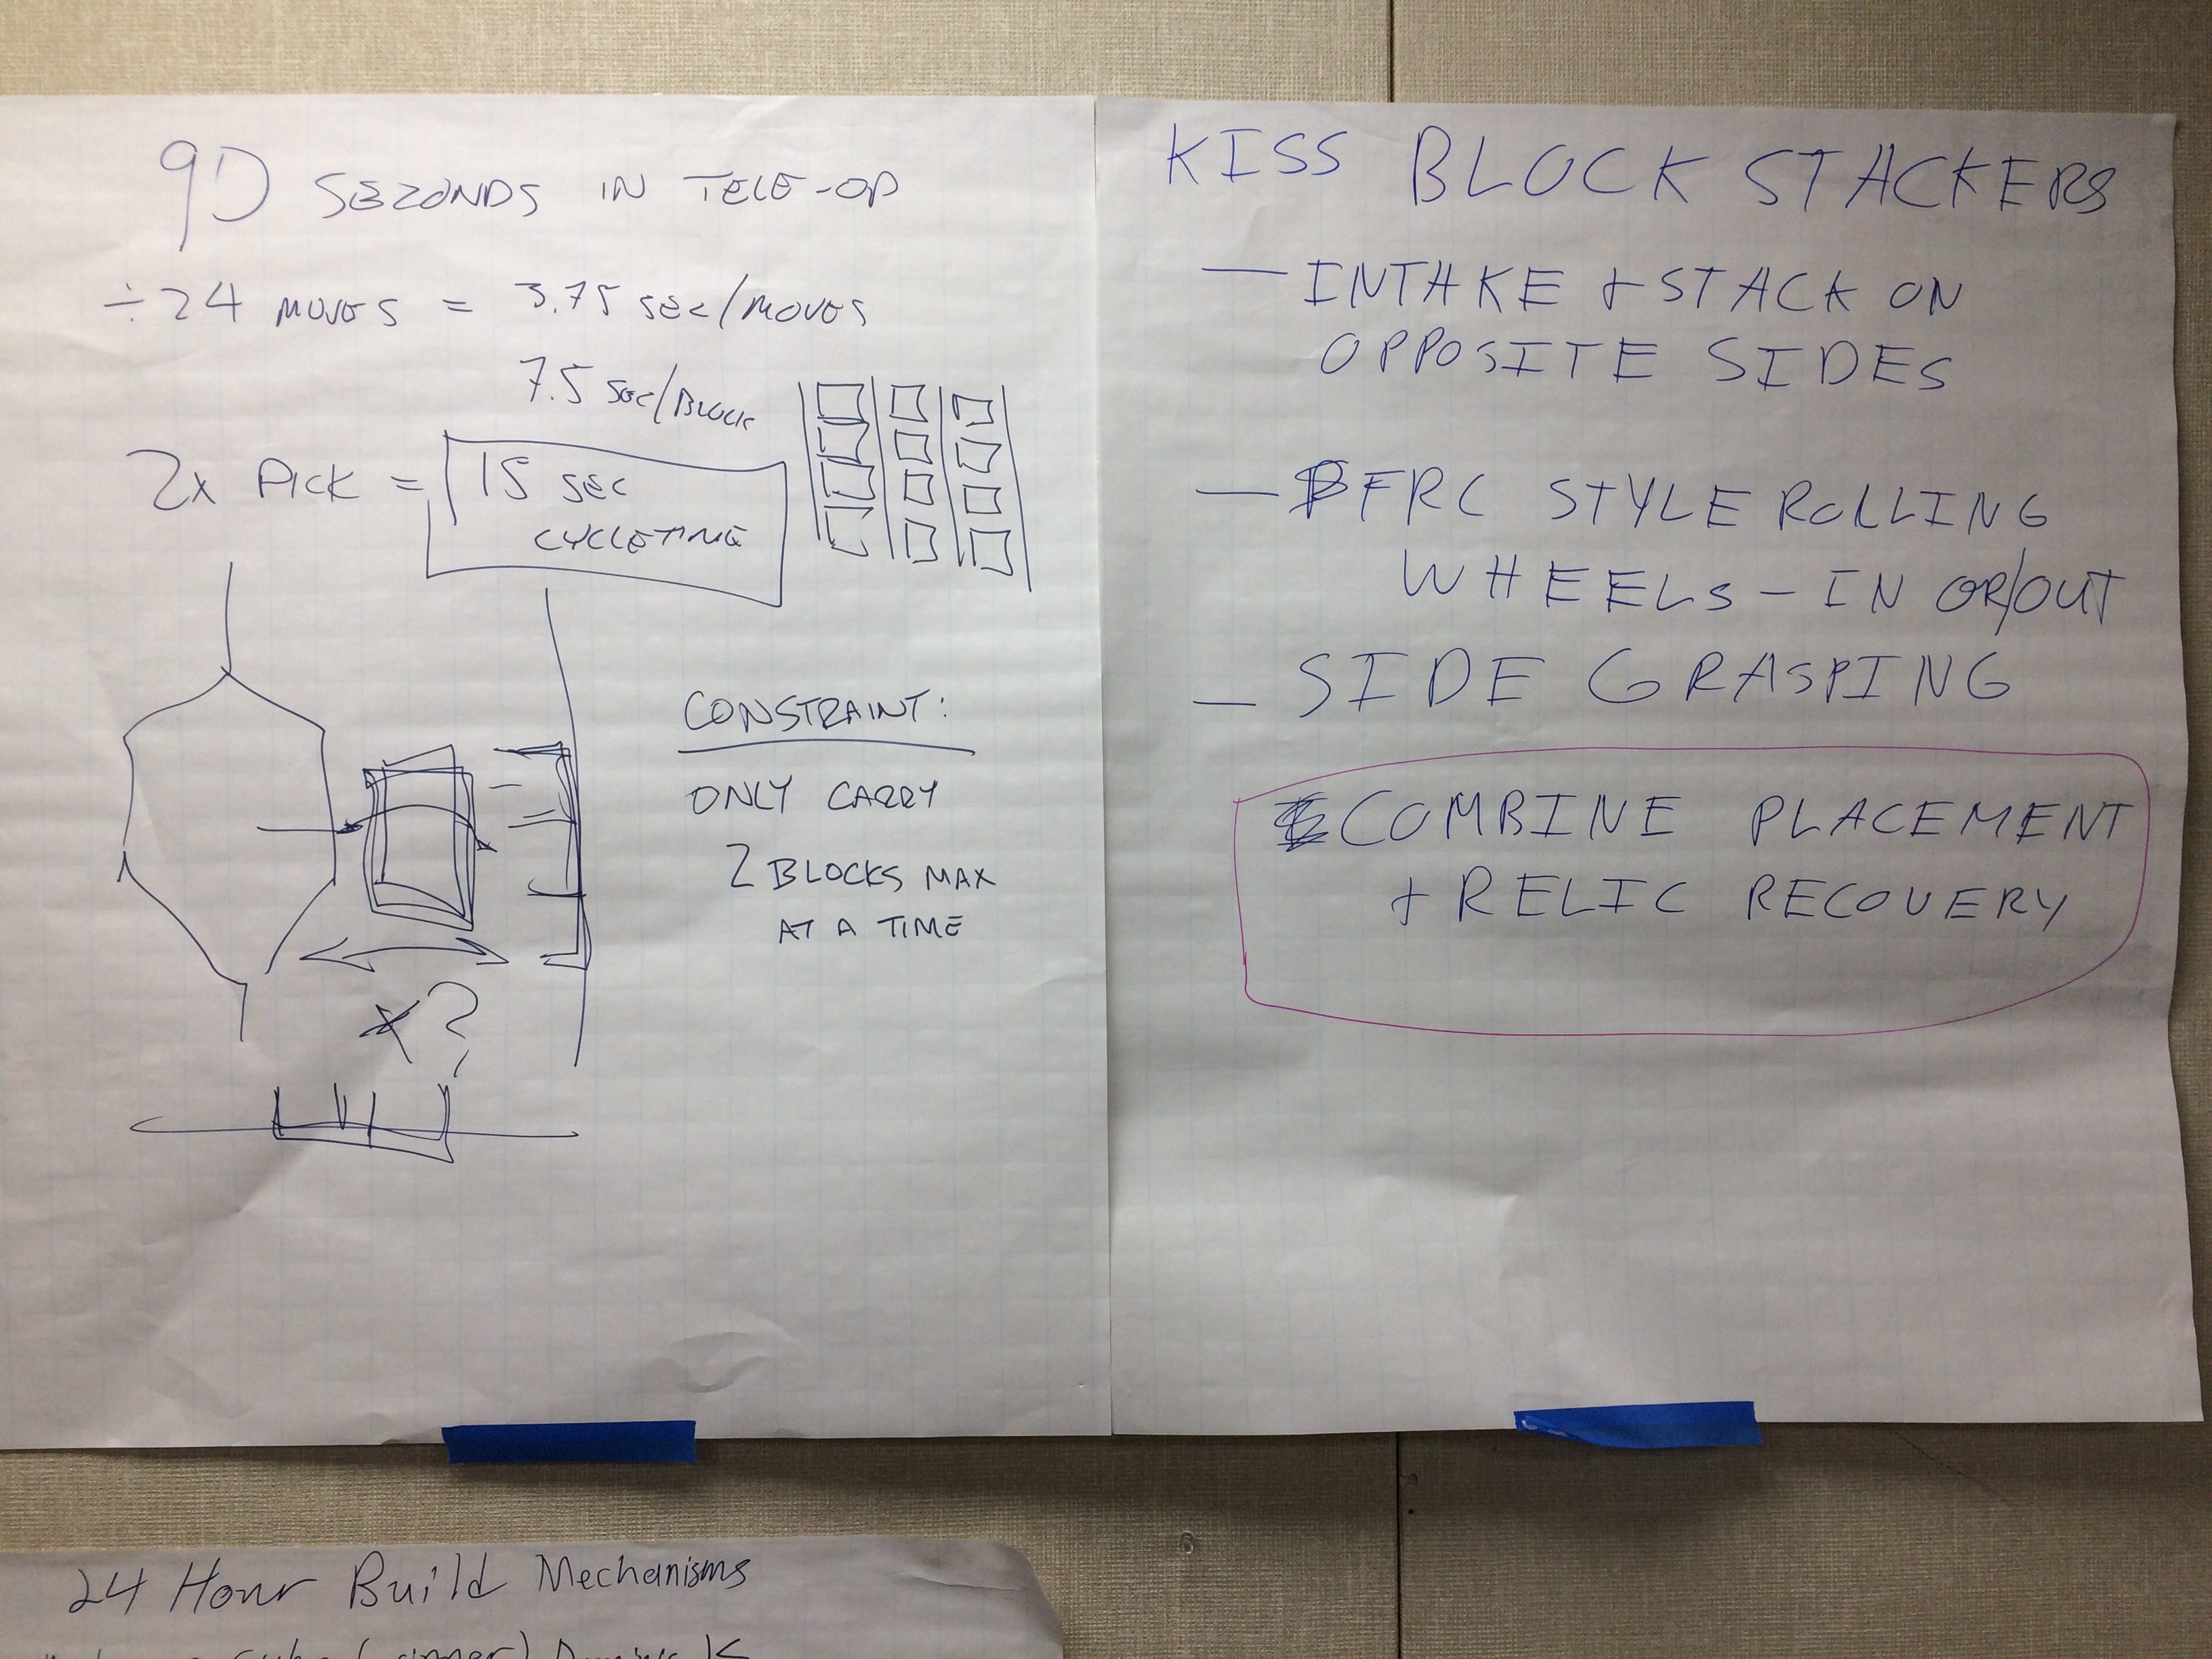 90 SECONDS IN TELE-OP
÷24 MOVES = 3.75 SEC/MOVES
7.5 SEC/BLOCK
2x PICK = 15 SEC
CYCLETIME
CONSTRAINT:
ONLY CARRY
2 BLOCKS MAX
AT A TIME
X?
KISS BLOCK STACKERS
— INTAKE + STACK ON
OPPOSITE SIDES
— FRC STYLE ROLLING
WHEELS – IN OR/OUT
— SIDE GRASPING
COMBINE PLACEMENT
+ RELIC RECOVERY
24 Hour Build Mechanisms